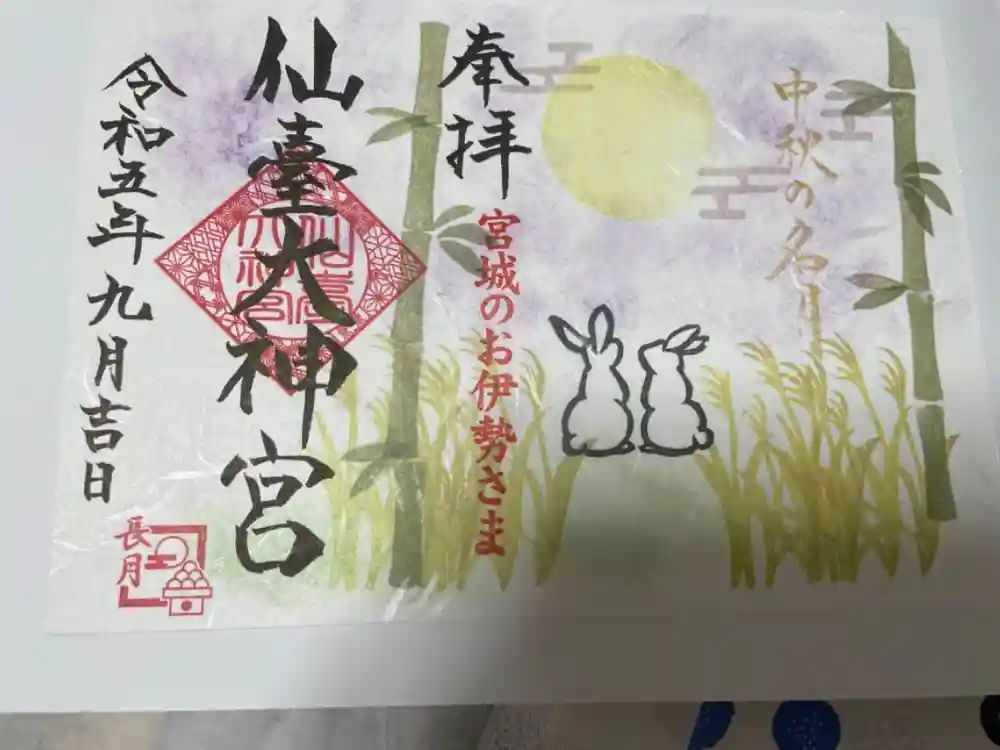 中秋の名月
奉拝
宮城のお伊勢さま
仙臺大神宮
仙臺
大神宮
令和五年九月吉日
長月